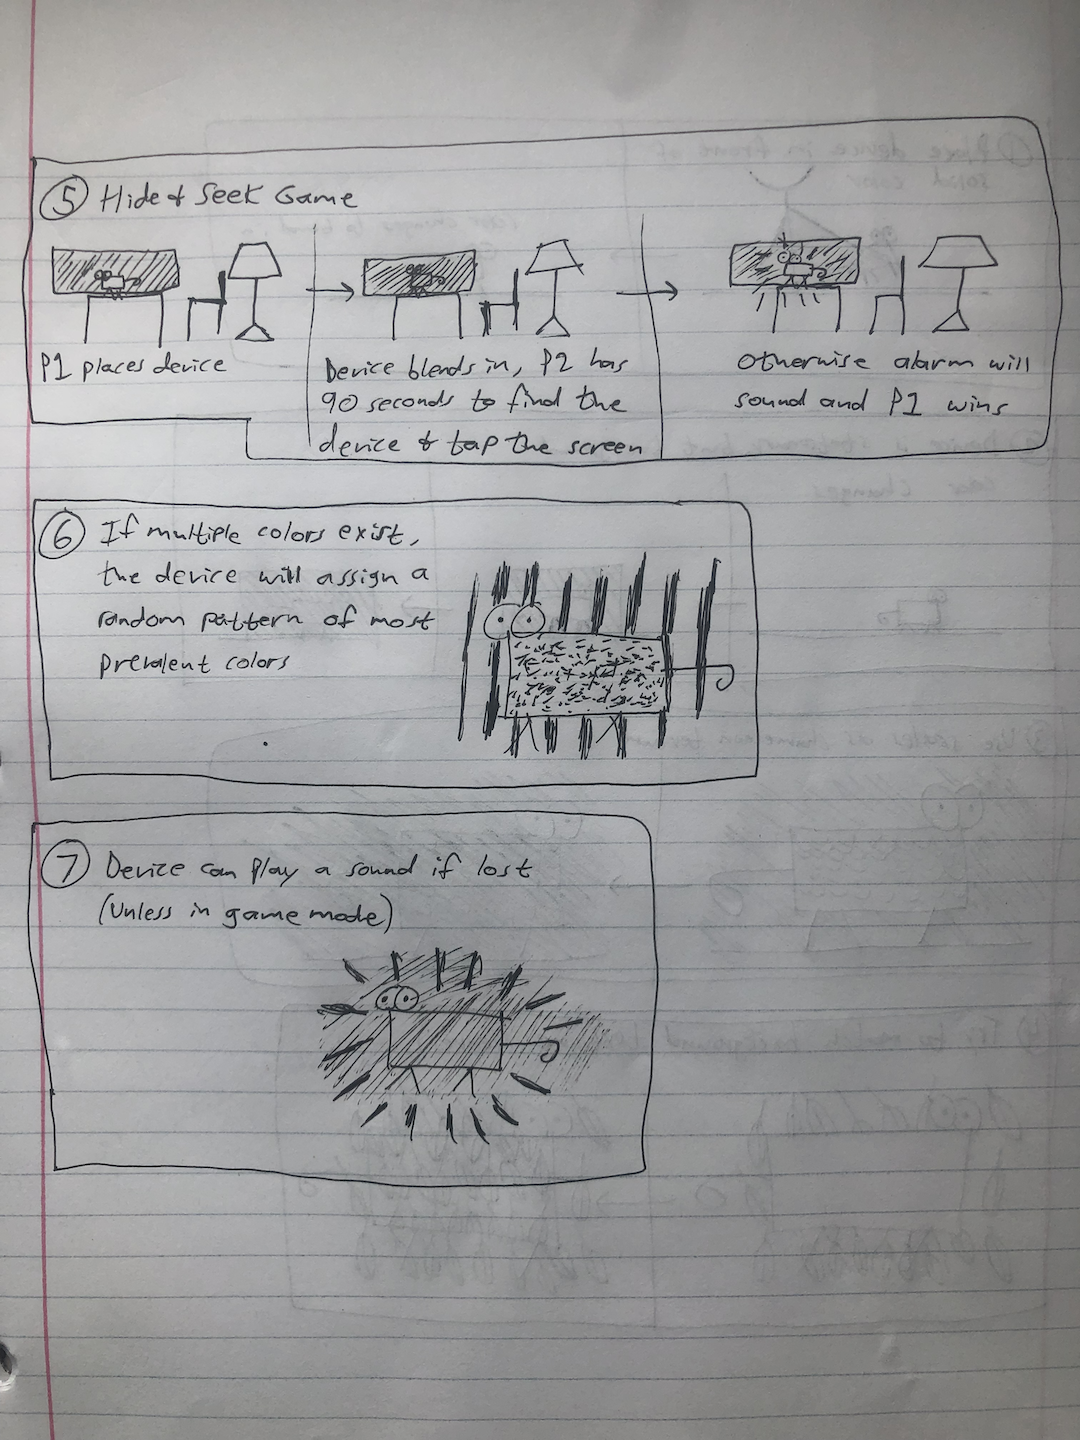 ⑤ Hide & Seek Game
P1 places device
Device blends in, P2 has
90 seconds to find the
device & tap the screen
otherwise alarm will
sound and P1 wins
⑥ If multiple colors exist,
the device will assign a
random pattern of most
prevalent colors
⑦ Device can play a sound if lost
(Unless in game mode)